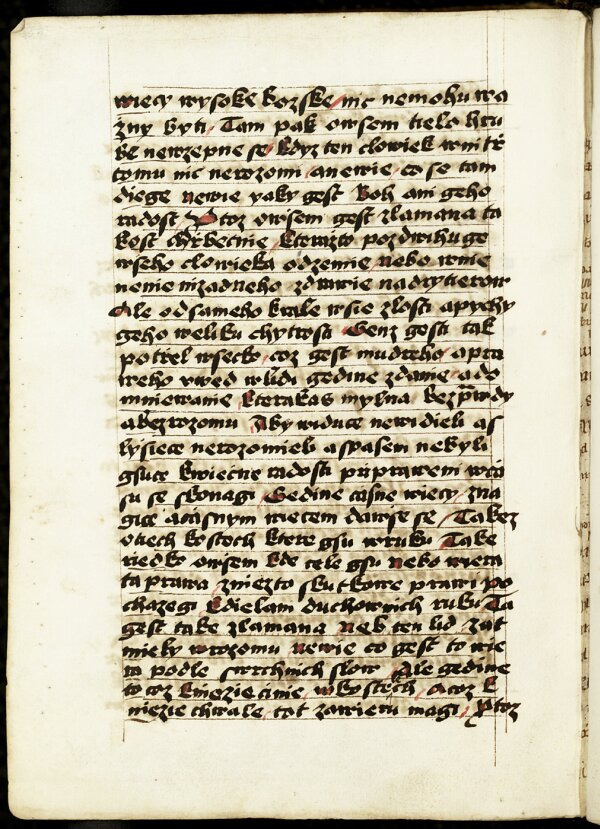 wiecy wysoke bozske nic nemohu wa
zny byti Tam pak owsem tielo hru
be newzepne se kdyz ten clowiek wni tr
tomu nic nerozomi anewie co se tam
diege newie yaky gest Boh ani geho
radost Protoz owsem gest zlamana ta
kost chrbecnie kterazto pozdwihuge
wseho clowieka odzemie nebo wnie
nenie nizadneho zdrawie nadcytierow
Ale odsameho krale wsie zlosti apychy
geho weliku chytrosti Genz gesti tak
potrel wseckо coz gest mudreho apra
weho vwed wlidi gedine zdanie ado
mniewanie kterakas mylna bezprwdy
abezrozomu Aby widuce newidieli as
lysiece nerozomieli aspasem nebyli
gsuce kwiecne radosti priprawem wcza
su se skonagi Gedine casne wiecy zna
gice acasnym wiecem dawse se Takez
otiech kostech ktere gsu wruku Take
riedko owsem kde cele gsu nebo wiera
ta prawa zniezto skutkowe prawi po
chazegi kdielam duchownich ruku Ta
gest take zlamana neb ten lid zat
miely wrozomu newie co gest to wie
ra podle swrchnich slow Ale gedine
to coz kniezie cinie wkostech Acoz k
niezie chwale tot zawieru magi Ptoz